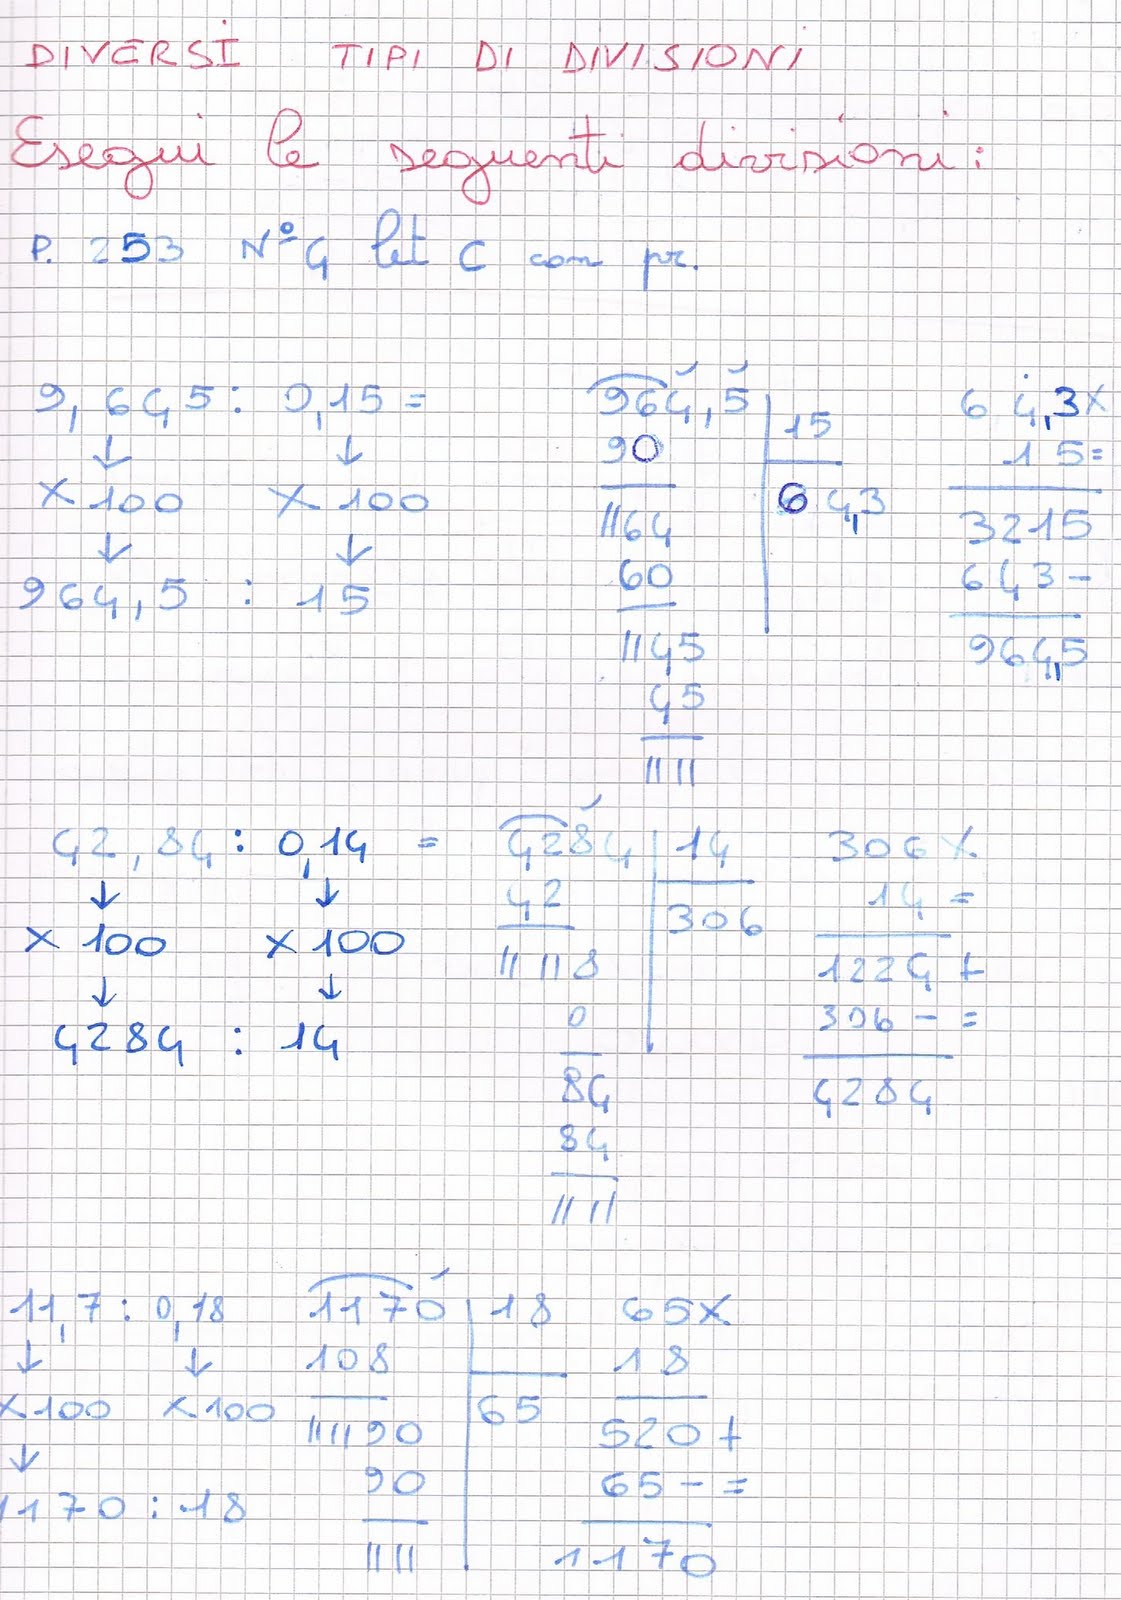 DIVERSI TIPI DI DIVISIONI
Esegui le seguenti divisioni:
P. 253 N° 4 let C con pr.
9,645 : 0,15 =
↓ ↓
x 100 x 100
↓ ↓
964,5 : 15
964,5 15
90
64,3
1164
60
1145
45
64,3 x
15 =
3215
643 -
964,5
42,84 : 0,14 =
↓ ↓
x 100 x 100
↓ ↓
4284 : 14
4284 14
42
306
8
0
84
84
306 x
14 =
1224 +
306 - =
4284
11,7 : 0,18
↓ ↓
x 100 x 100
↓
1170 : 18
1170 18
108
65
90
90
65 x
18
520 +
65 - =
1170